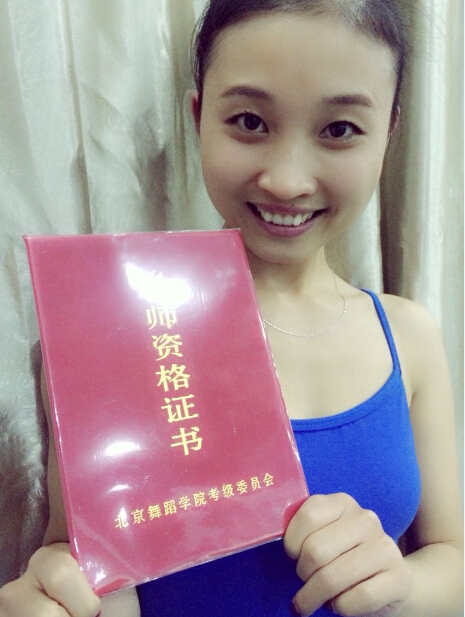 师资格证书
北京舞蹈学院考级委员会